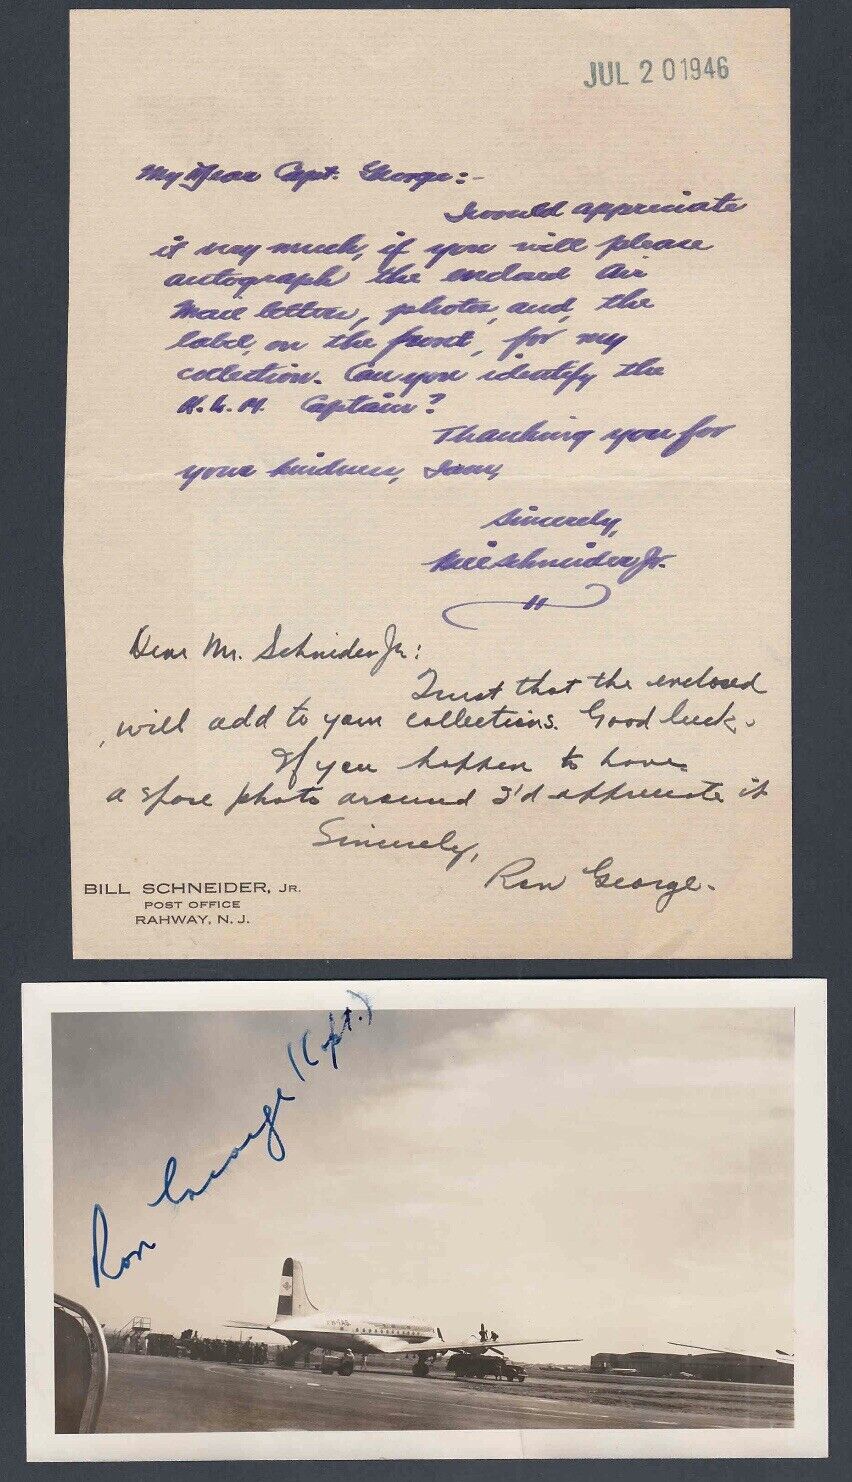 JUL 20 1946
My Dear Capt. George:-
I would appreciate
it very much, if you will please
autograph the enclosed Air
Mail letter, photos, and, the
label, on the front, for my
collection. Can you identify the
K.L.M. Captain?
Thanking you for
your kindness, I am,
Sincerely,
Bill Schneider Jr.
Dear Mr. Schneider Jr:
Trust that the enclosed
will add to your collections. Good luck.
If you happen to have
a spare photo around I'd appreciate it
Sincerely,
Ron George.
BILL SCHNEIDER, JR.
POST OFFICE
RAHWAY, N. J.
Ron George (Capt.)